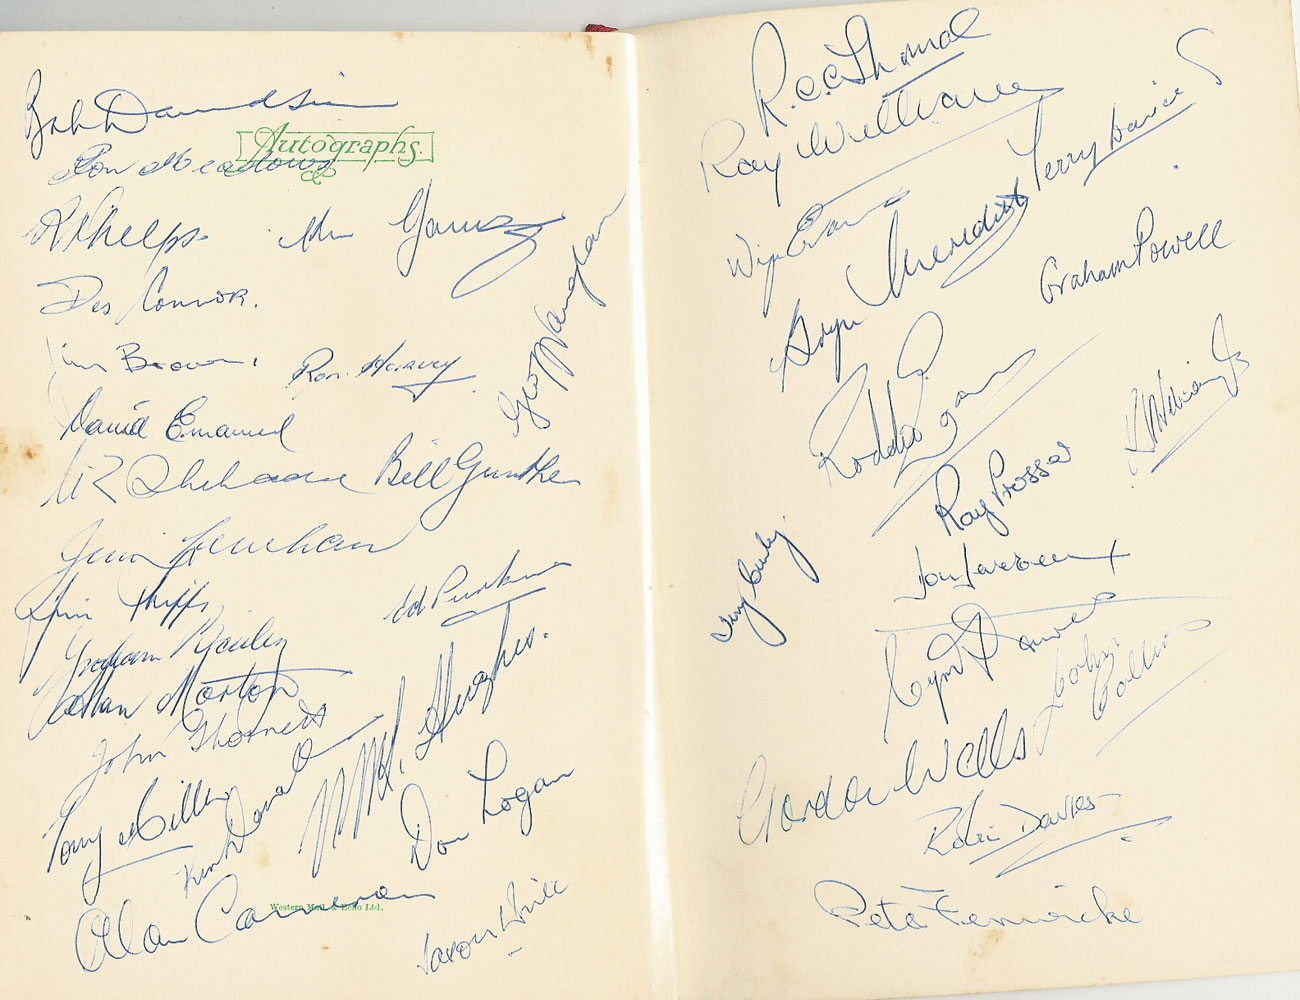 Bob Davidson
Autographs.
Ron Meadows
R Phelps
Des Connor.
Geo Vaughan
Jim Brown.
Ron. Harvey
David Emanuel
Bill Gunther
Jim Lenehan
Jim Phipps
Ed Purkiss
Graham Bailey
Allan Morton
John Thornett
Hughes.
Tony Miller
Ken Donald
Don Logan
Alan Cameron
Western Mail & Echo Ltd.
Saxon White
R.C.C. Thomas
Ray Williams
Terry Davies
Wyn Evans
Bryn Meredith
Graham Powell
Roddy Evans
Ray Prosser
Terry Curley
Cyril Davies
John Collins
Gordon Wells
Robin Davies
Peter Fenwicke